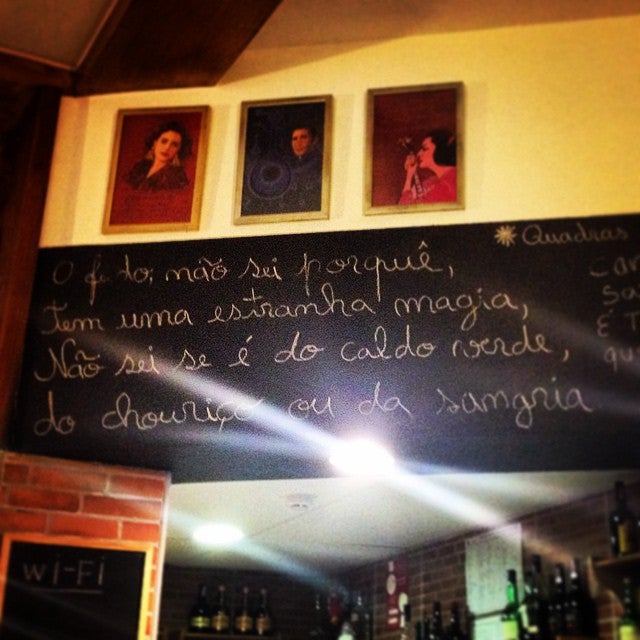 O fado, não sei porquê,
tem uma estranha magia,
Não sei se é do caldo verde,
do chouriço ou da sangria
Quadras
É
WI-FI